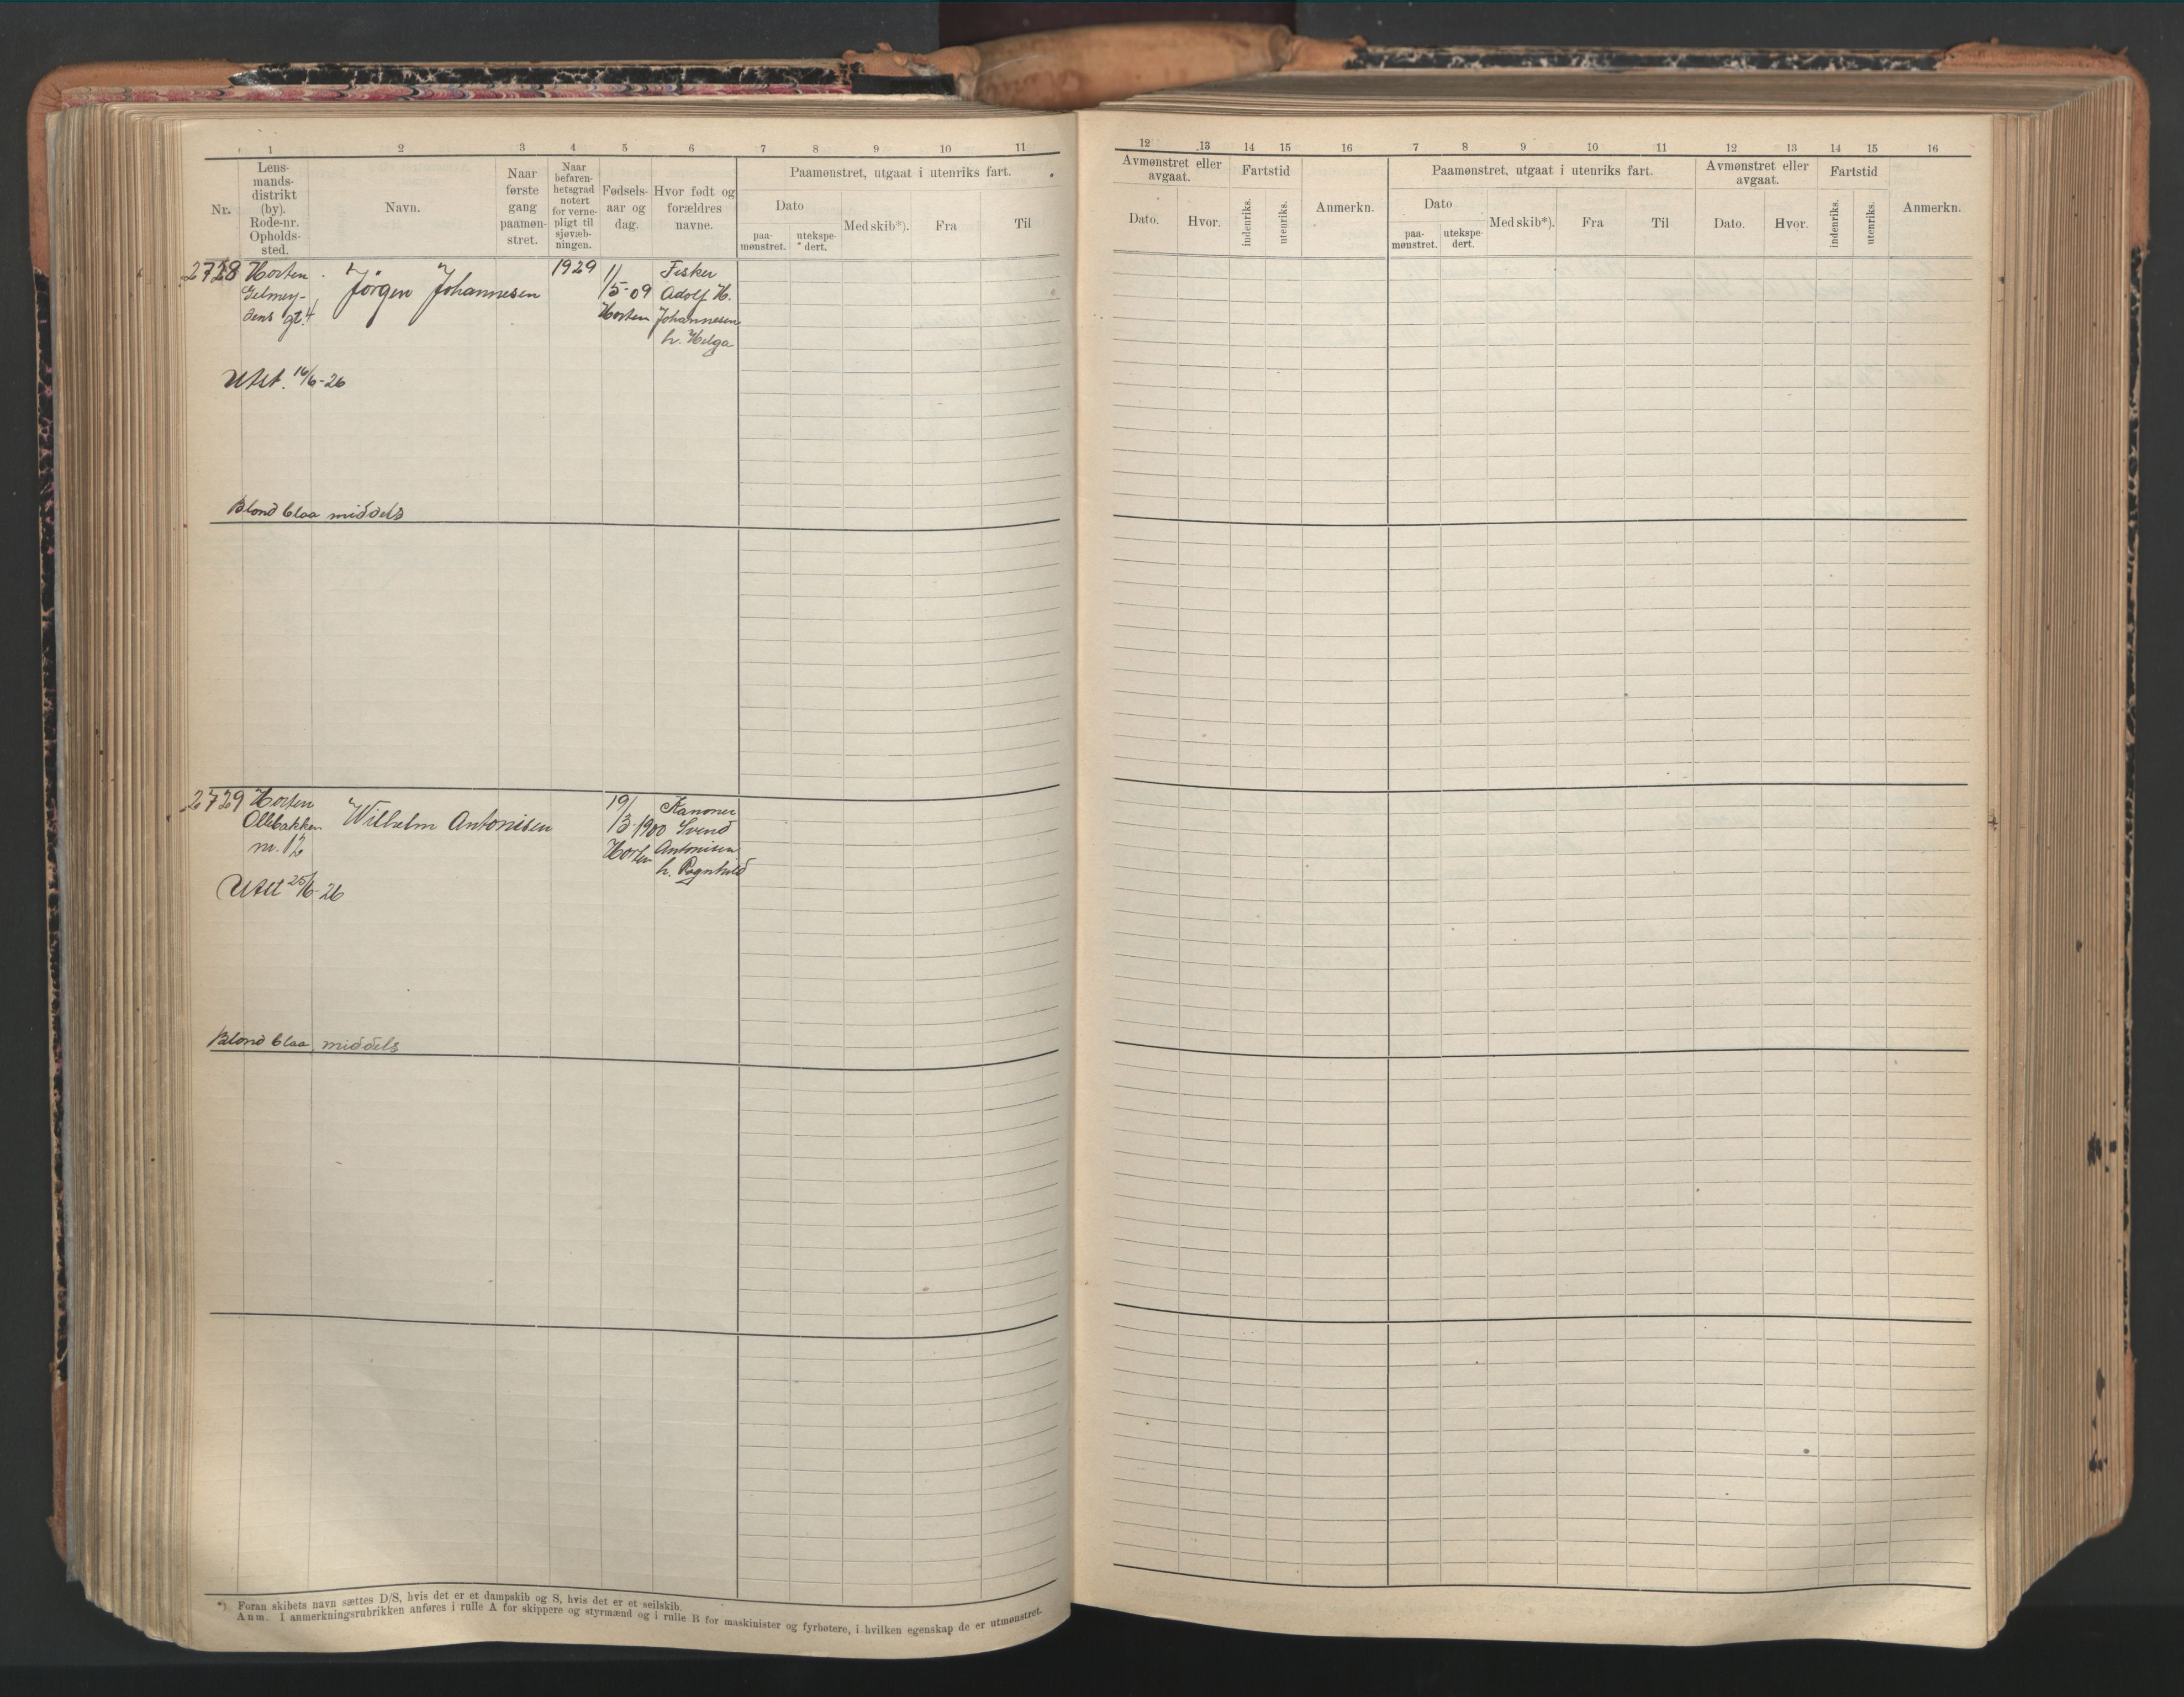 1 2 3 4 5 6 7 8 9 10 11
Nr.
Lens-
mands-
distrikt
(by).
Rode-nr.
Opholds-
sted.
Navn.
Naar
første
gang
paamøn-
stret.
Naar
befaren-
hetsgrad
notert
for verne-
pligt til
sjøvæb-
ningen.
Fødsels-
aar og
dag.
Hvor født og
forældres
navne.
Paamønstret, utgaat i utenriks fart.
Dato
paa-
mønstret.
utekspe-
dert.
Med skib*).
Fra
Til
12 13 14 15 16 7 8 9 10 11 12 13 14 15 16
Avmønstret eller
avgaat.
Dato.
Hvor.
Fartstid
indenriks.
utenriks.
Anmerkn.
Paamønstret, utgaat i utenriks fart.
Dato
paa-
mønstret.
utekspe-
dert.
Med skib*).
Fra
Til
Avmønstret eller
avgaat.
Dato.
Hvor.
Fartstid
indenriks.
utenriks.
Anmerkn.
2728 Horten Jörgen Johannesen 1929 1/5-09 Fisker
Adolf H.
sens gt. 4 Horten Johannesen
h. Helga
Utst. 16/6-26
Blond blaa middels
2729 Horten Wilhelm Antonisen 19/3 1900 Kanoner
Ollebakken Svend
nr. 12 Horten Antonisen
h. Ragnhild
Utst 25/6-26
Blond blaa middels
*) Foran skibets navn sættes D/S, hvis det er et dampskib og S, hvis det er et seilskib.
Anm. I anmerkningsrubrikken anføres i rulle A for skippere og styrmænd og i rulle B for maskinister og fyrbøtere, i hvilken egenskap de er utmønstret.